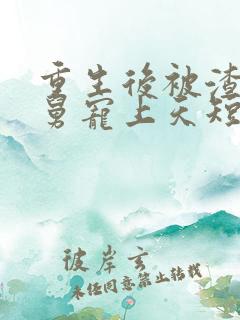 重生後被渣
舅寵上天短
彼岸玄
未经同意禁止转载